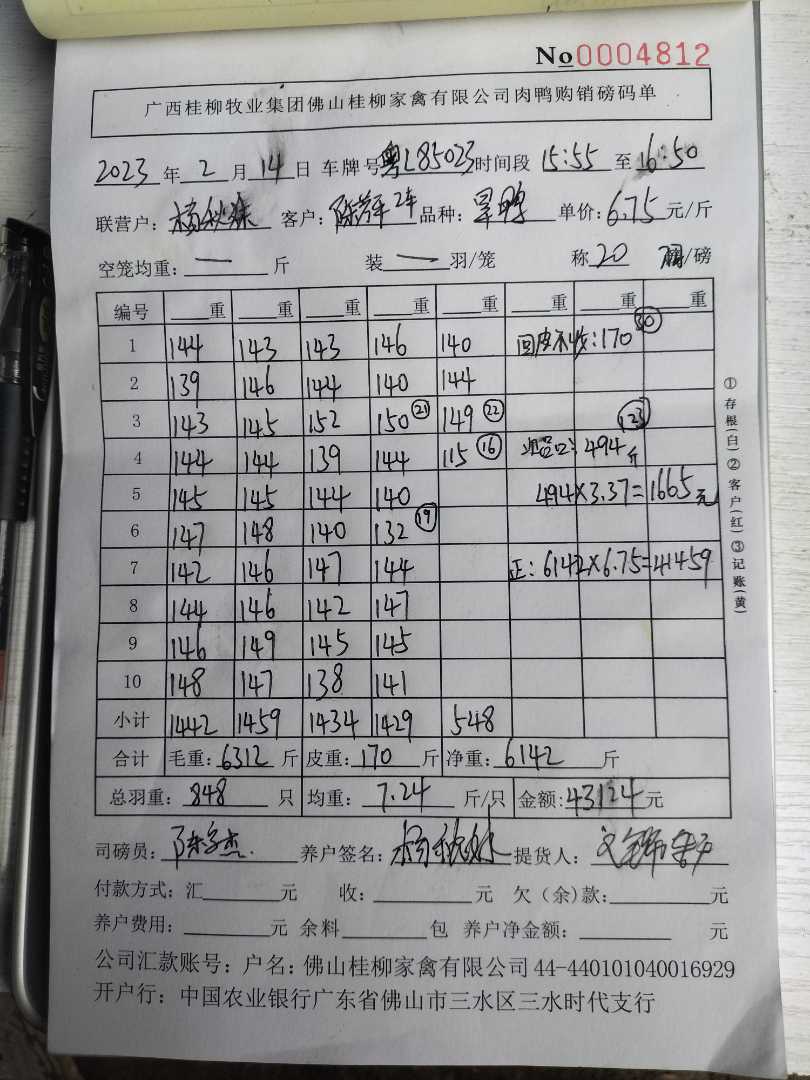 No 0004812
广西桂柳牧业集团佛山桂柳家禽有限公司肉鸭购销磅码单
2023 年 2 月 14 日 车牌号 粤L85023 时间段 15:55 至 16:50
联营户: 杨秋 客户: 陈 2车 品种: 鸭 单价: 6.75 元/斤
空笼均重: 一 斤 装 一 羽/笼 称 20 /磅
编号 重 重 重 重 重 重 重 重
1 144 143 143 146 140 回皮不收:170 30
2 139 146 144 140 144
3 143 145 152 150 21 149 22 123
4 144 144 139 144 115 16 494斤
5 145 145 144 140 494×3.37=1665元
6 147 148 140 132 19
7 142 146 147 144 正: 6142×6.75=41459
8 144 146 142 147
9 146 149 145 145
10 148 147 138 141
小计 1442 1459 1434 1429 548
合计 毛重: 6312 斤 皮重: 170 斤 净重: 6142 斤
总羽重: 848 只 均重: 7.24 斤/只 金额: 43124 元
司磅员: 陈 杰 养户签名: 杨秋 提货人:
付款方式: 汇 元 收: 元 欠(余)款: 元
养户费用: 元 余料 包 养户净金额: 元
公司汇款账号: 户名: 佛山桂柳家禽有限公司 44-440101040016929
开户行: 中国农业银行广东省佛山市三水区三水时代支行
①存根(白)②客户(红)③记账(黄)